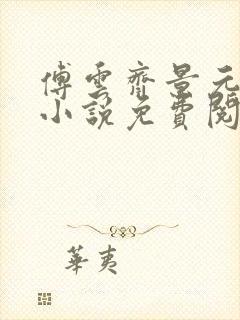 傅雲齊景元
小說免費閱
華夷